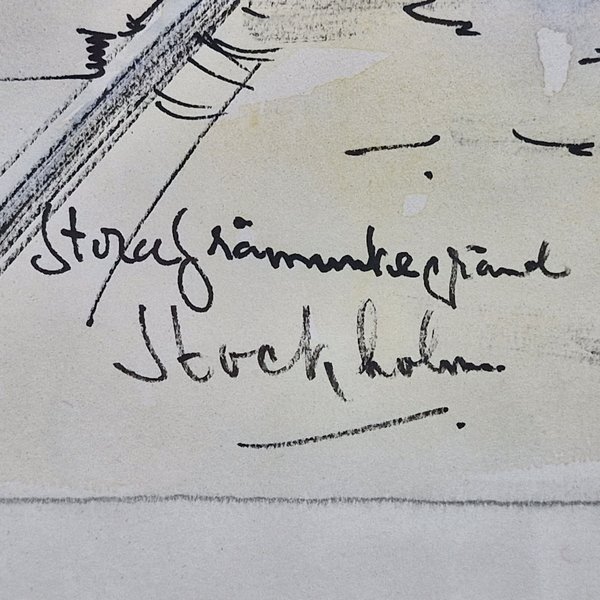 Stora Gråmunkegränd
Stockholm